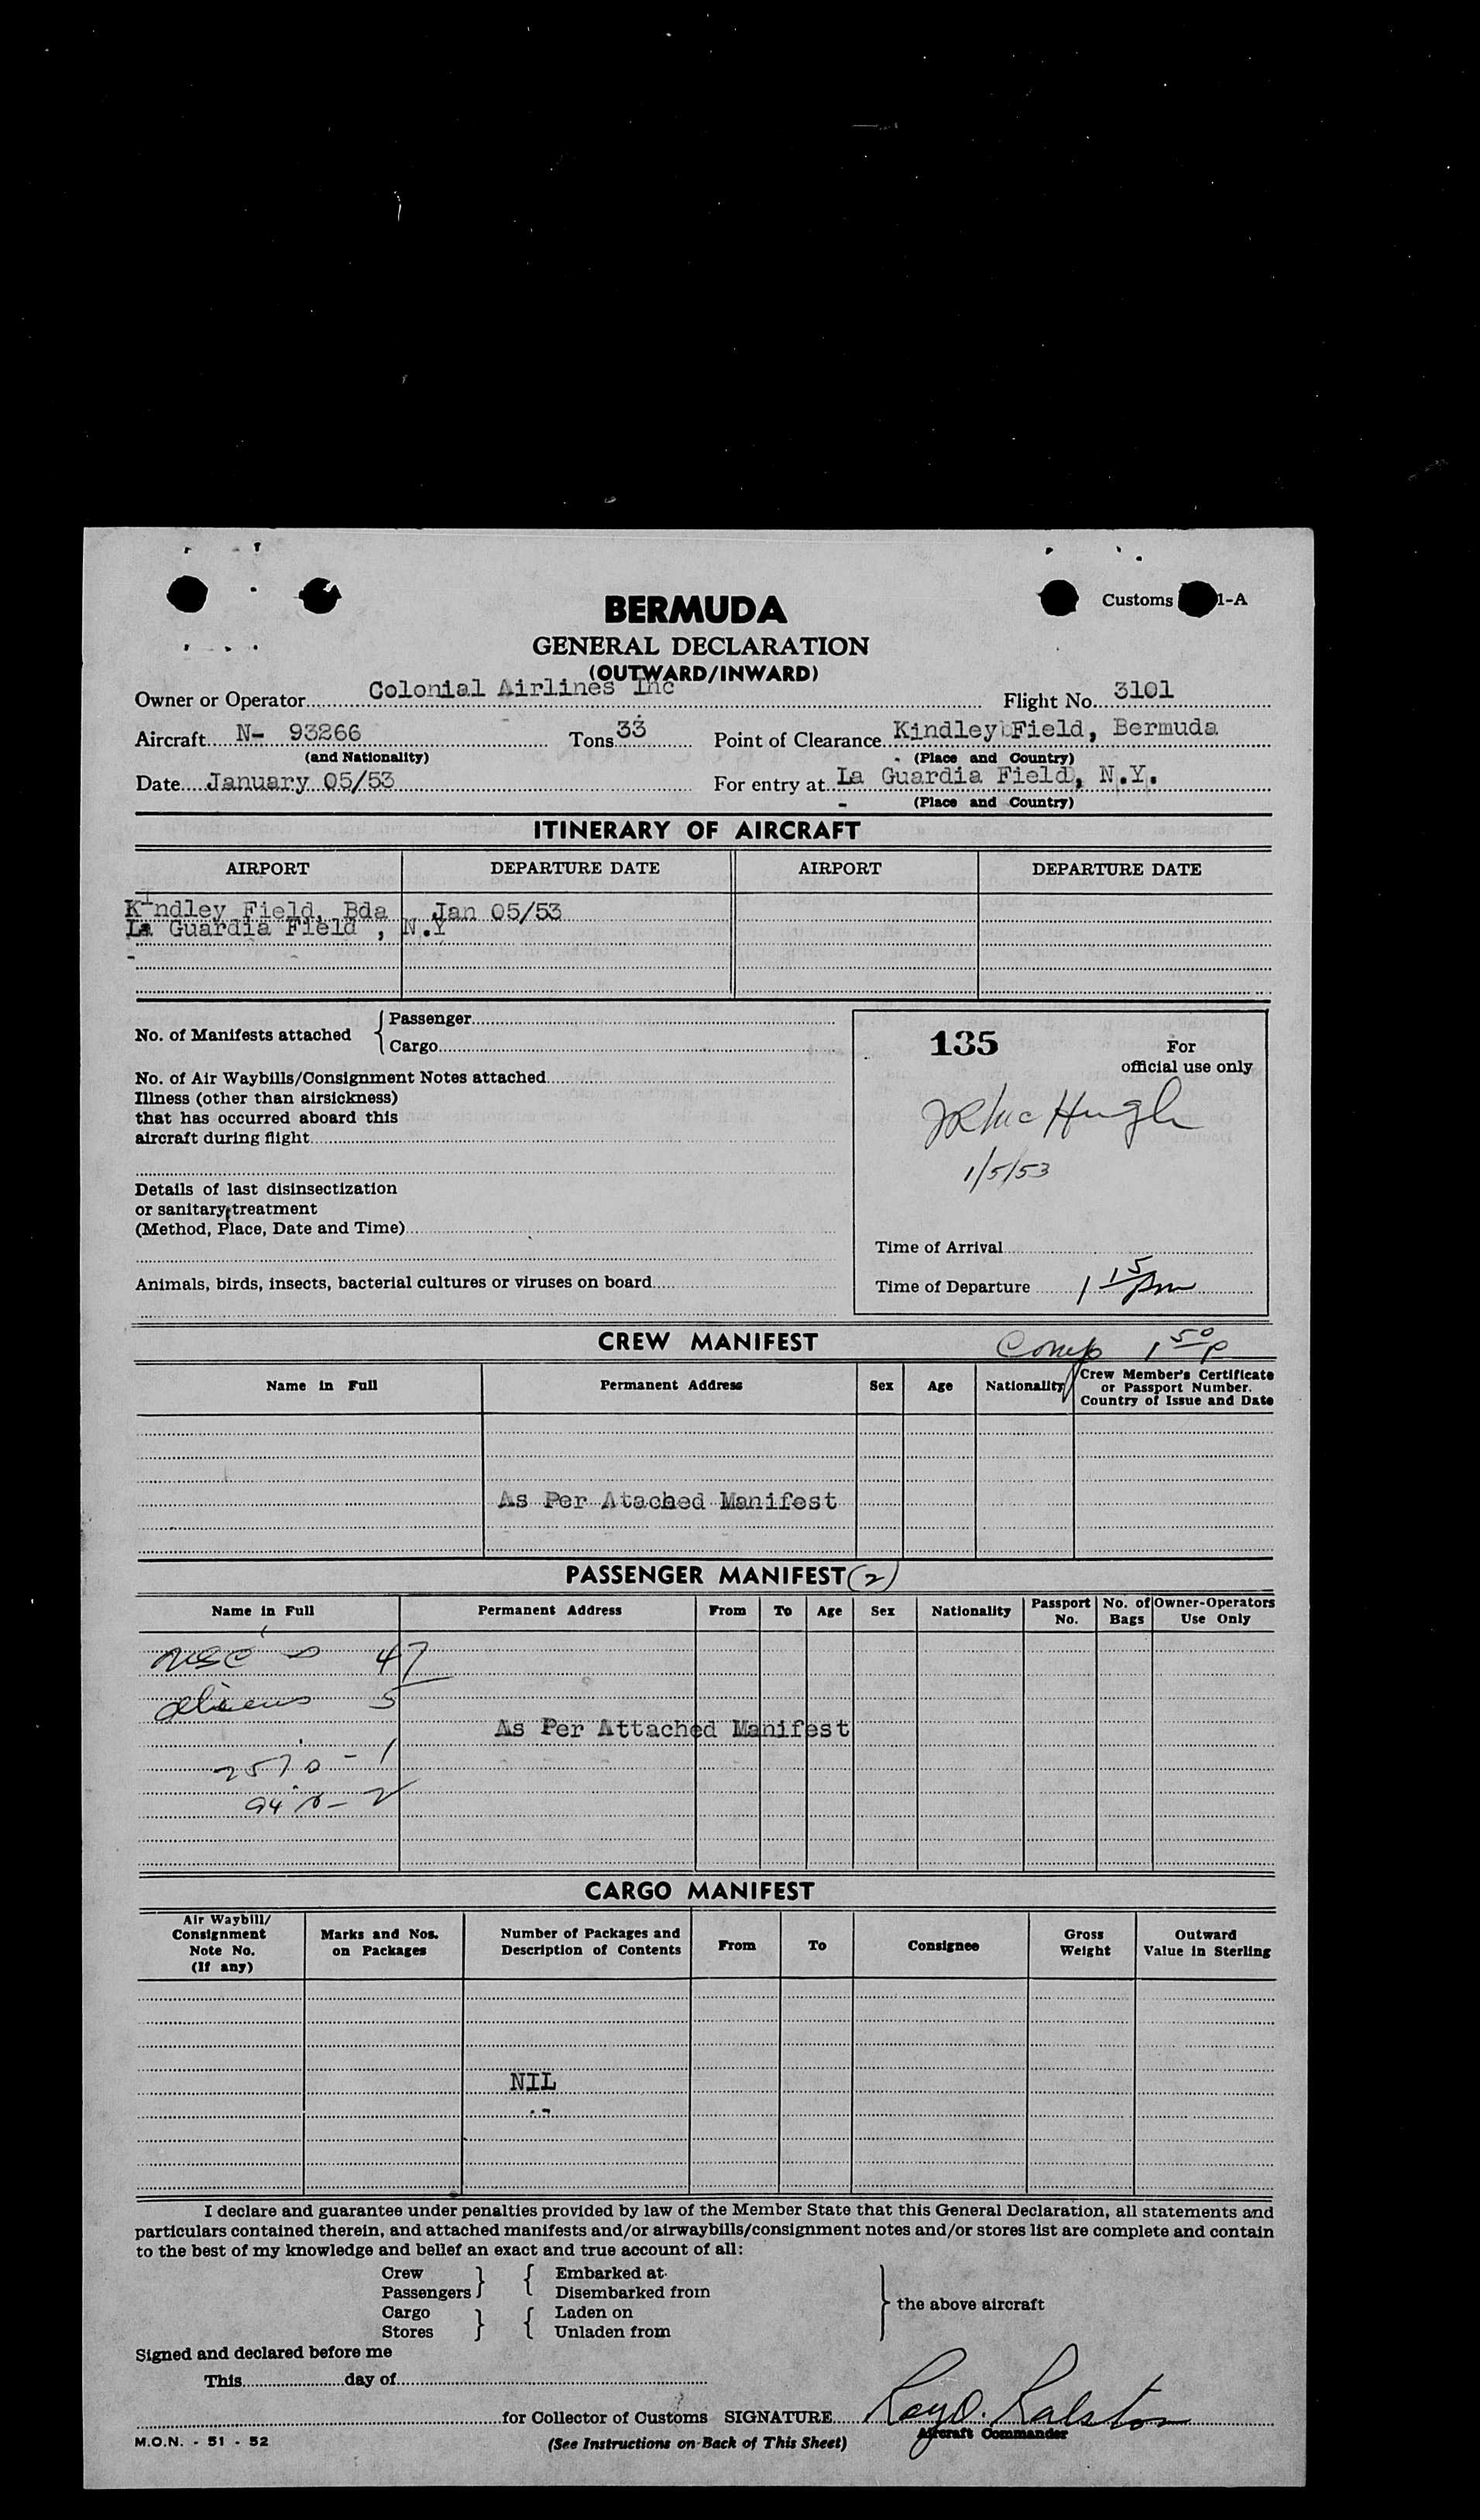 BERMUDA
Customs 1-A
GENERAL DECLARATION
(OUTWARD/INWARD)
Owner or Operator Colonial Airlines Inc Flight No. 3101
Aircraft N- 93266 Tons 33 Point of Clearance Kindley Field, Bermuda
(and Nationality) (Place and Country)
Date January 05/53 For entry at La Guardia Field, N.Y.
(Place and Country)
ITINERARY OF AIRCRAFT
AIRPORT DEPARTURE DATE AIRPORT DEPARTURE DATE
Kindley Field, Bda Jan 05/53
La Guardia Field , N.Y
No. of Manifests attached { Passenger
Cargo
135
For
official use only
No. of Air Waybills/Consignment Notes attached
Illness (other than airsickness)
that has occurred aboard this
aircraft during flight
McHugh
1/5/53
Details of last disinsectization
or sanitary treatment
(Method, Place, Date and Time)
Time of Arrival
Animals, birds, insects, bacterial cultures or viruses on board
Time of Departure 1 15 pm
CREW MANIFEST
Comp 1 50 P
Name in Full Permanent Address Sex Age Nationality Crew Member's Certificate
or Passport Number.
Country of Issue and Date
As Per Atached Manifest
PASSENGER MANIFEST (2)
Name in Full Permanent Address From To Age Sex Nationality Passport No. No. of Bags Owner-Operators Use Only
47
aliens 5
As Per Attached Manifest
CARGO MANIFEST
Air Waybill/
Consignment
Note No.
(If any)
Marks and Nos.
on Packages
Number of Packages and
Description of Contents
From To Consignee
Gross
Weight
Outward
Value in Sterling
NIL
I declare and guarantee under penalties provided by law of the Member State that this General Declaration, all statements and
particulars contained therein, and attached manifests and/or airwaybills/consignment notes and/or stores list are complete and contain
to the best of my knowledge and belief an exact and true account of all:
Crew } { Embarked at
Passengers Disembarked from
} the above aircraft
Cargo } { Laden on
Stores Unladen from
Signed and declared before me
This day of
for Collector of Customs SIGNATURE Roy D. Ralston
Aircraft Commander
M.O.N. - 51 - 52
(See Instructions on Back of This Sheet)